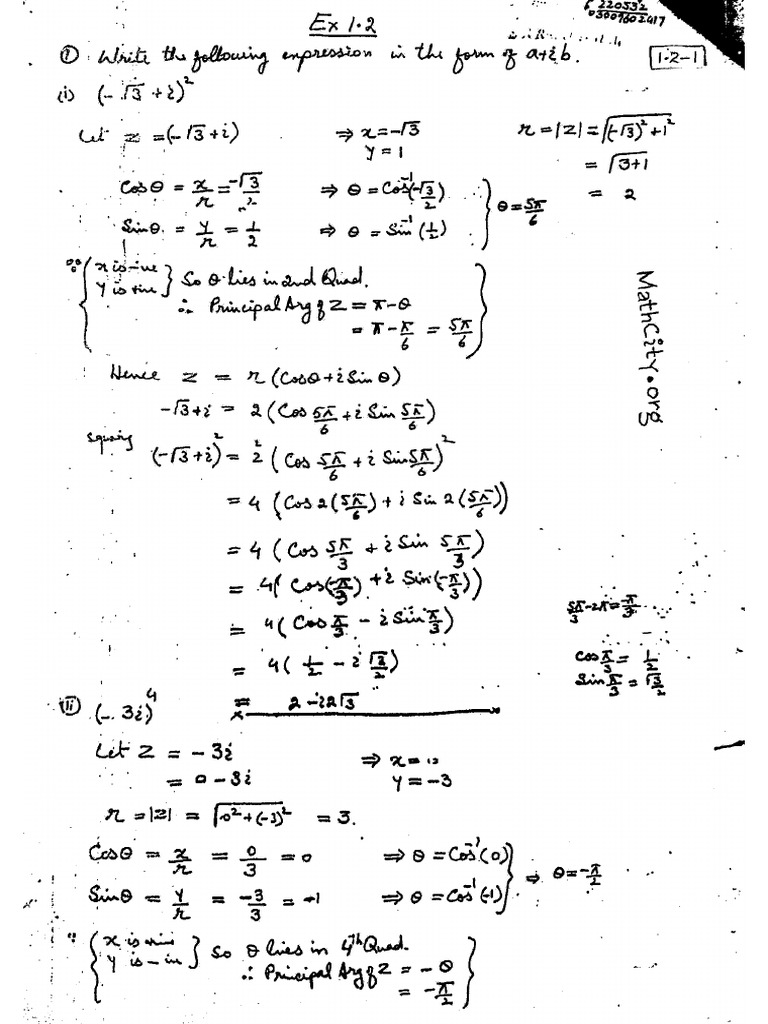 220532
03009602417
Ex 1.2
① Write the following expression in the form of a+ib.
1-2-1
(i) (-√3+i)²
Let z = (-√3+i) ⇒ x=-√3 r=|z|=√((-√3)²+1²)
y = 1 = √(3+1)
Cosθ = x/r = -√3/2 ⇒ θ = Cos⁻¹(-√3/2) = 2
Sinθ = y/r = 1/2 ⇒ θ = Sin⁻¹(1/2) } θ = 5π/6
∵ { x is -ive
y is +ive } So θ lies in 2nd Quad.
∴ Principal Arg of Z = π-θ
= π - π/6 = 5π/6 }
MathCity.org
Hence z = r (Cosθ + i Sinθ)
-√3+i = 2 (Cos 5π/6 + i Sin 5π/6)
squaring (-√3+i)² = 2² (Cos 5π/6 + i Sin 5π/6)²
= 4 (Cos 2(5π/6) + i Sin 2(5π/6))
= 4 (Cos 5π/3 + i Sin 5π/3)
= 4( Cos(-π/3) + i Sin(-π/3))
5π/3 - 2π = -π/3
= 4( Cos π/3 - i Sin π/3)
= 4( 1/2 - i √3/2)
Cos π/3 = 1/2
Sin π/3 = √3/2
= 2 - i2√3
(ii) (-3i)⁴
Let Z = -3i ⇒ x = 0
= 0-3i y = -3
r = |z| = √(0²+(-3)²) = 3.
Cosθ = x/r = 0/3 = 0 ⇒ θ = Cos⁻¹(0)
Sinθ = y/r = -3/3 = -1 ⇒ θ = Cos⁻¹(-1) } ⇒ θ = -π/2
∵ { x is +ive
y is -in } So θ lies in 4th Quad.
∴ Principal Arg of Z = -θ
= -π/2 }